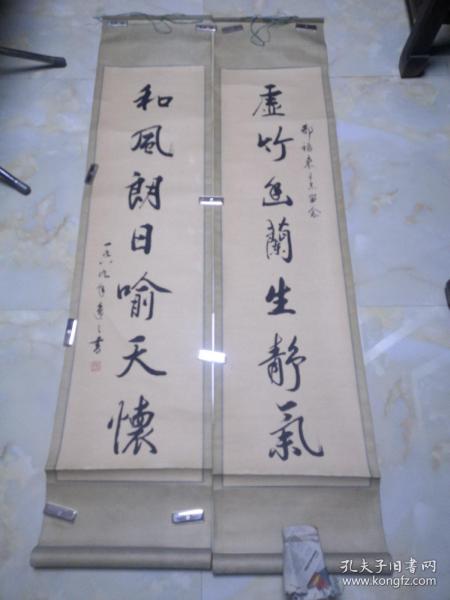 虚竹幽蘭生静氣
和風朗日喻天懷
一九八九年
書
孔夫子旧书网
www.kongfz.com